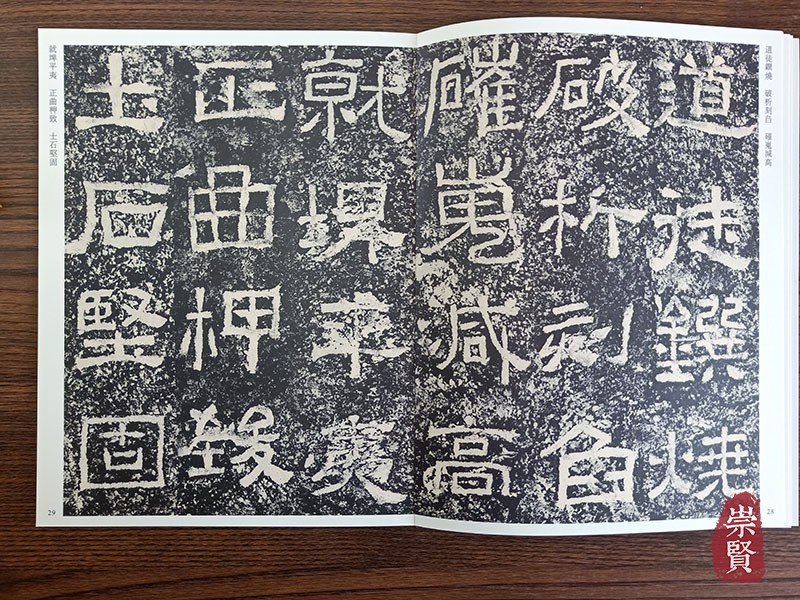 道徒鐉燒 破析刻臽 磪嵬減高
道徒鐉燒
破析刻臽
磪嵬減高
28
就埤平夷
正曲柙致
土石堅固
就埤平夷 正曲柙致 土石堅固
29
崇賢